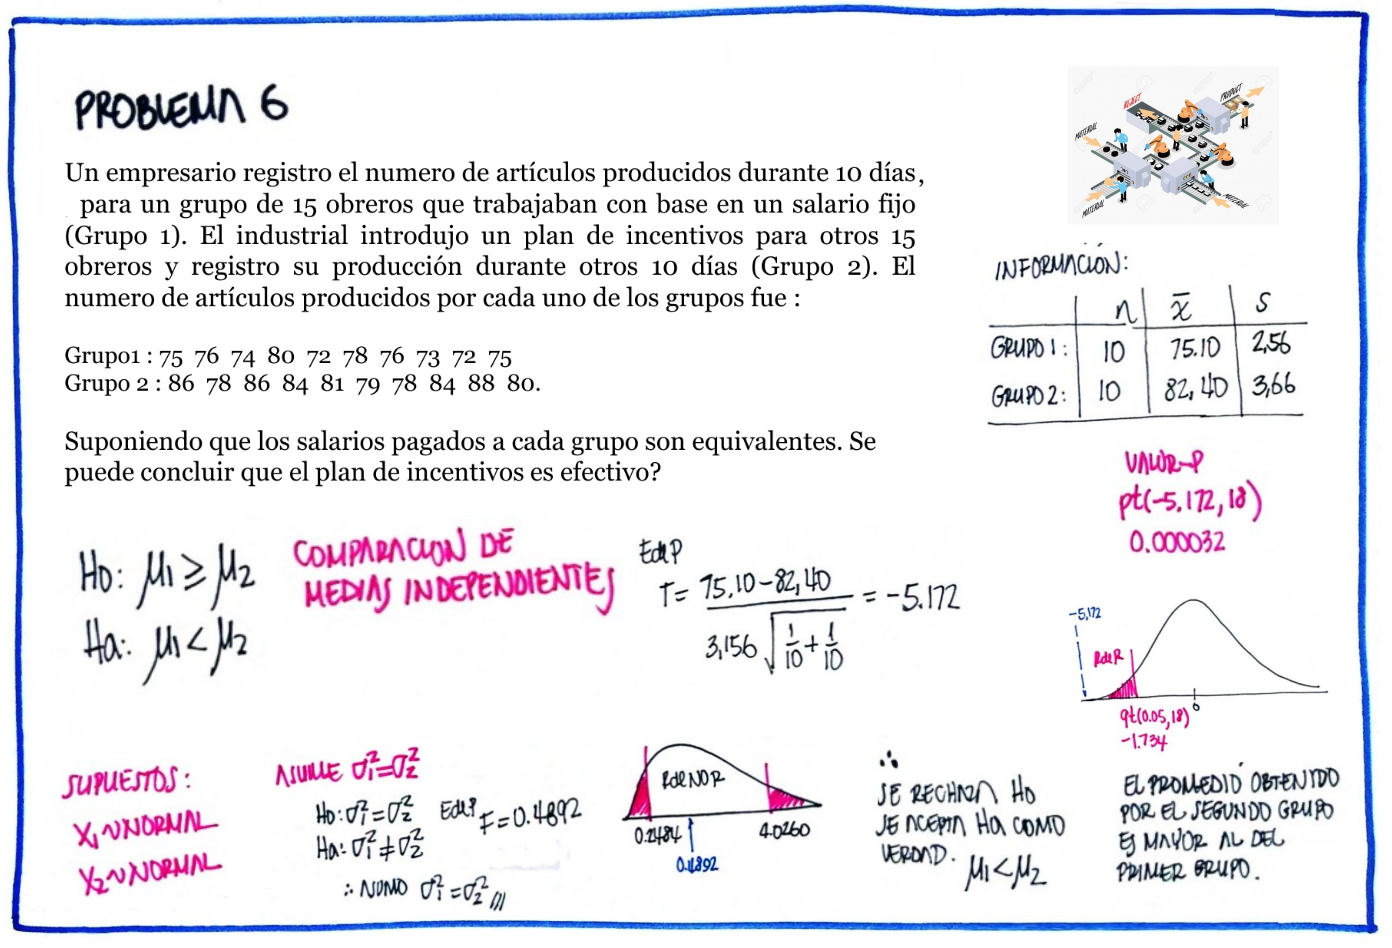 PROBLEMA 6
Un empresario registro el numero de artículos producidos durante 10 días,
para un grupo de 15 obreros que trabajaban con base en un salario fijo
(Grupo 1). El industrial introdujo un plan de incentivos para otros 15
obreros y registro su producción durante otros 10 días (Grupo 2). El
numero de artículos producidos por cada uno de los grupos fue :
Grupo1 : 75 76 74 80 72 78 76 73 72 75
Grupo 2 : 86 78 86 84 81 79 78 84 88 80.
Suponiendo que los salarios pagados a cada grupo son equivalentes. Se
puede concluir que el plan de incentivos es efectivo?
REJECT
PRODUCT
MATERIAL
MATERIAL
MATERIAL
INFORMACIÓN:
n x̄ S
GRUPO 1: 10 75.10 2,56
GRUPO 2: 10 82,40 3,66
VALOR-P
pt(-5.172, 18)
0.000032
Ho: μ1 ≥ μ2
Ha: μ1 < μ2
COMPARACION DE
MEDIAS INDEPENDIENTES
EdeP
T = 75.10 - 82,40 / 3,156 √ 1/10 + 1/10 = -5.172
-5,172
RdeR
0
qt(0.05, 18)
-1.734
SUPUESTOS:
X1 ~ NORMAL
X2 ~ NORMAL
ASUME σ1² = σ2²
Ho: σ1² = σ2²
Ha: σ1² ≠ σ2²
EdeP F = 0.4892
∴ ASUMO σ1² = σ2² //
RdeNOR
0.2484 4.0260
0.4892
∴
SE RECHAZA Ho
SE ACEPTA Ha COMO
VERDAD. μ1 < μ2
EL PROMEDIO OBTENIDO
POR EL SEGUNDO GRUPO
ES MAYOR AL DEL
PRIMER GRUPO.